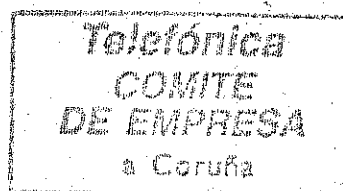 Telefónica
COMITE
DE EMPRESA
a Coruña